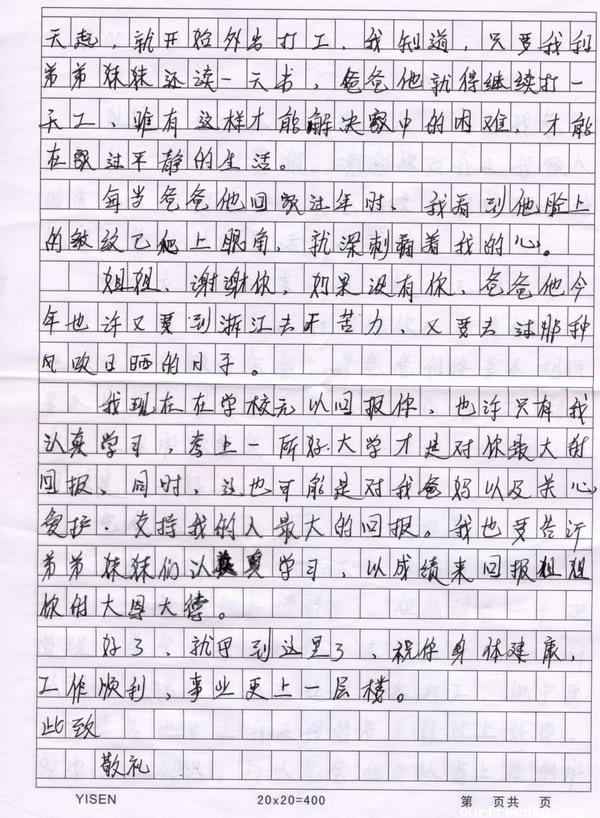 天起，就开始外出打工，我知道，只要我和
弟弟妹妹还读一天书，爸爸他就得继续打一
天工，唯有这样才能解决家中的困难，才能
在家过平静的生活。
每当爸爸他回家过年时，我看到他脸上
的皱纹已爬上眼角，就深刺痛着我的心。
姐姐，谢谢你，如果没有你，爸爸他今
年也许又要到浙江去干苦力，又要去过那种
风吹日晒的日子。
我现在在学校无以回报你，也许只有我
认真学习，考上一所好大学才是对你最大的
回报，同时，这也可能是对我爸妈以及关心
爱护、支持我的人最大的回报。我也要告诉
弟弟妹妹们认真学习，以成绩来回报姐姐
你的大恩大德。
好了，就写到这里了，祝你身体健康，
工作顺利，事业更上一层楼。
此致
敬礼
YISEN 20x20=400 第 页共 页